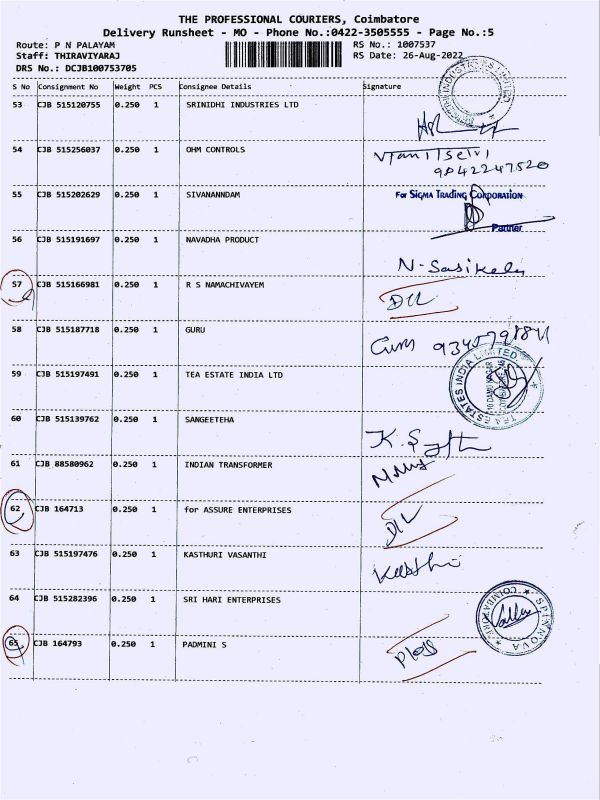 THE PROFESSIONAL COURIERS, Coimbatore
Delivery Runsheet - MO - Phone No.:0422-3505555 - Page No.:5
Route: P N PALAYAM RS No.: 1007537
Staff: THIRAVIYARAJ RS Date: 26-Aug-2022
DRS No.: DCJB100753705
S No Consignment No Weight PCS Consignee Details Signature
53 CJB 515120755 0.250 1 SRINIDHI INDUSTRIES LTD
54 CJB 515256037 0.250 1 OHM CONTROLS
9842247520
55 CJB 515202629 0.250 1 SIVANANNDAM For SIGMA TRADING CORPORATION
Partner
56 CJB 515191697 0.250 1 NAVADHA PRODUCT
N-Sasikala
57 CJB 515166981 0.250 1 R S NAMACHIVAYEM
58 CJB 515187718 0.250 1 GURU
Guru
59 CJB 515197491 0.250 1 TEA ESTATE INDIA LTD
TEA ESTATES INDIA LIMITED
60 CJB 515139762 0.250 1 SANGEETEHA
61 CJB 88580962 0.250 1 INDIAN TRANSFORMER
62 CJB 164713 0.250 1 for ASSURE ENTERPRISES
63 CJB 515197476 0.250 1 KASTHURI VASANTHI
64 CJB 515282396 0.250 1 SRI HARI ENTERPRISES
SPINNOVA
COIMBATORE
65 CJB 164793 0.250 1 PADMINI S